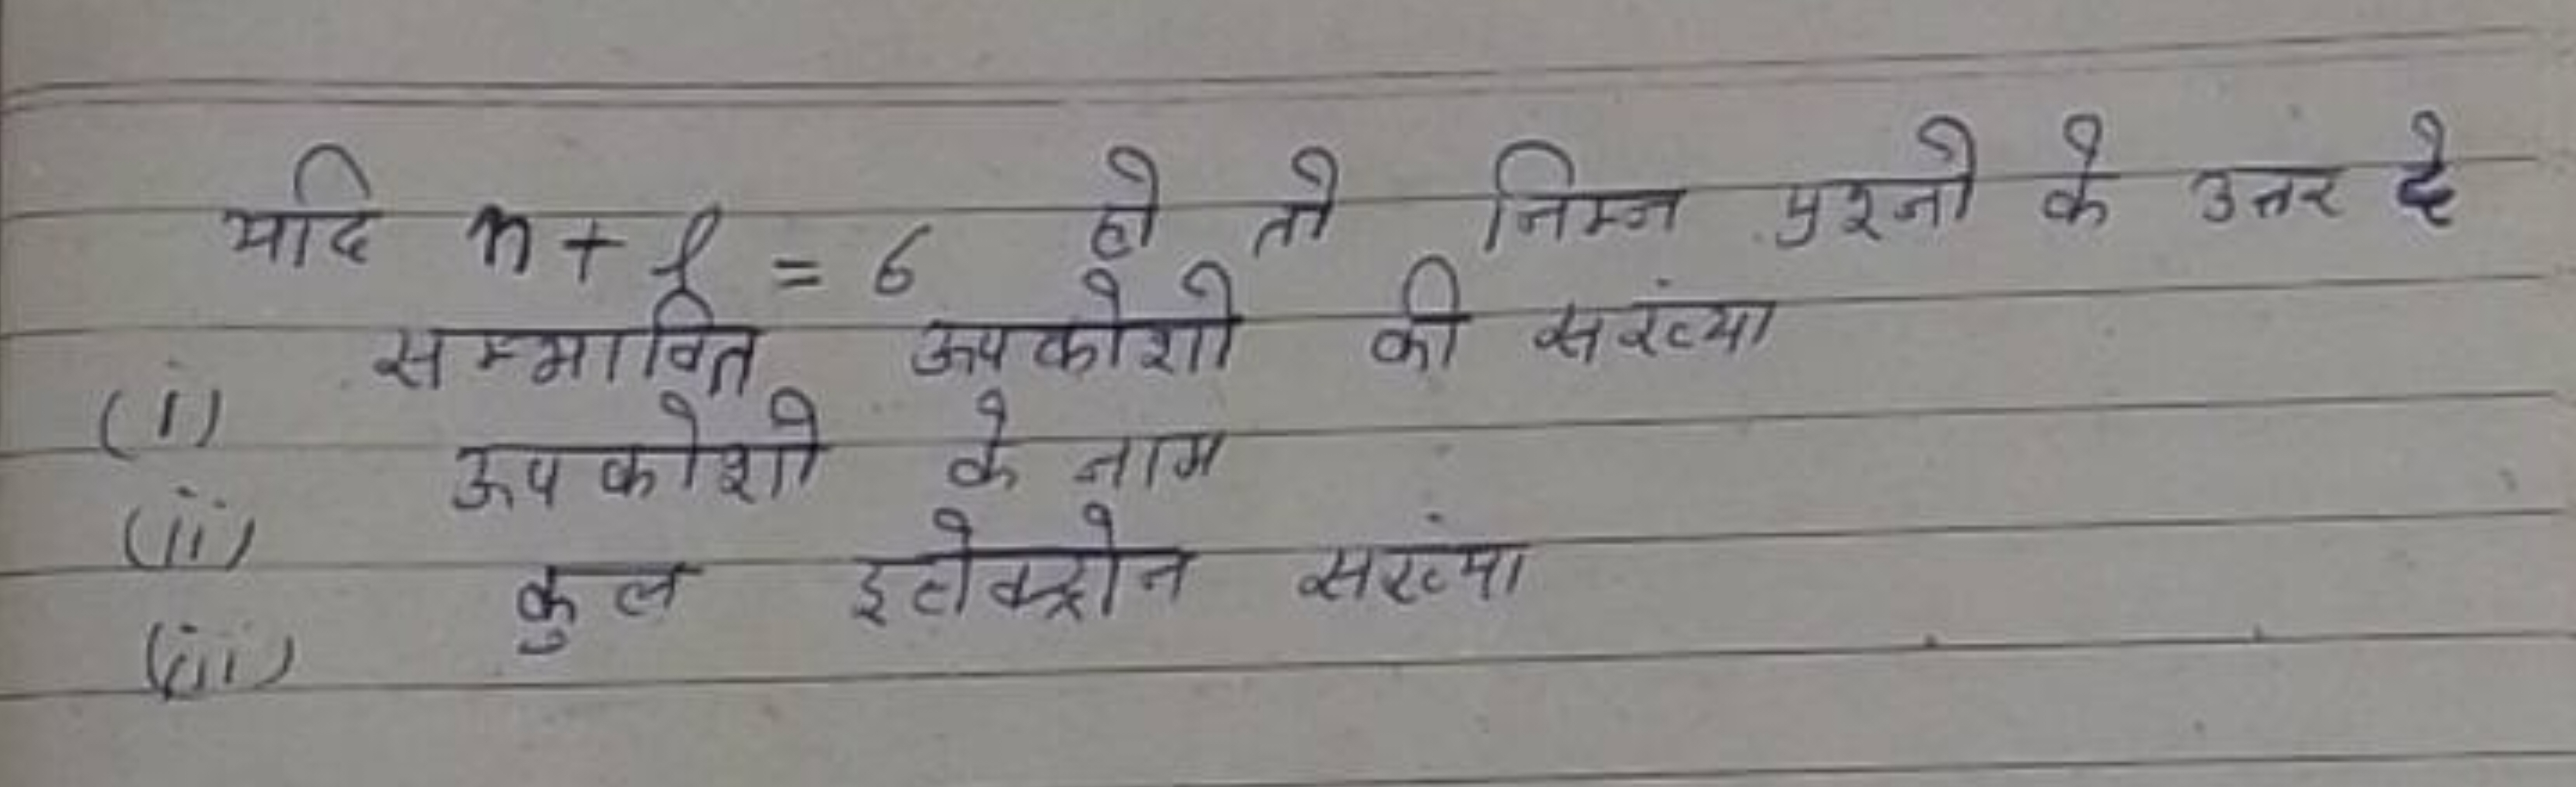 यदि n + l = 6 हो तो निम्न प्रश्नो के उत्तर दे
(i) सम्भावित ऊपकोशो की सरंख्या
(ii) ऊपकोशो के नाम
(iii) कुल इलेक्ट्रोन सरंख्या